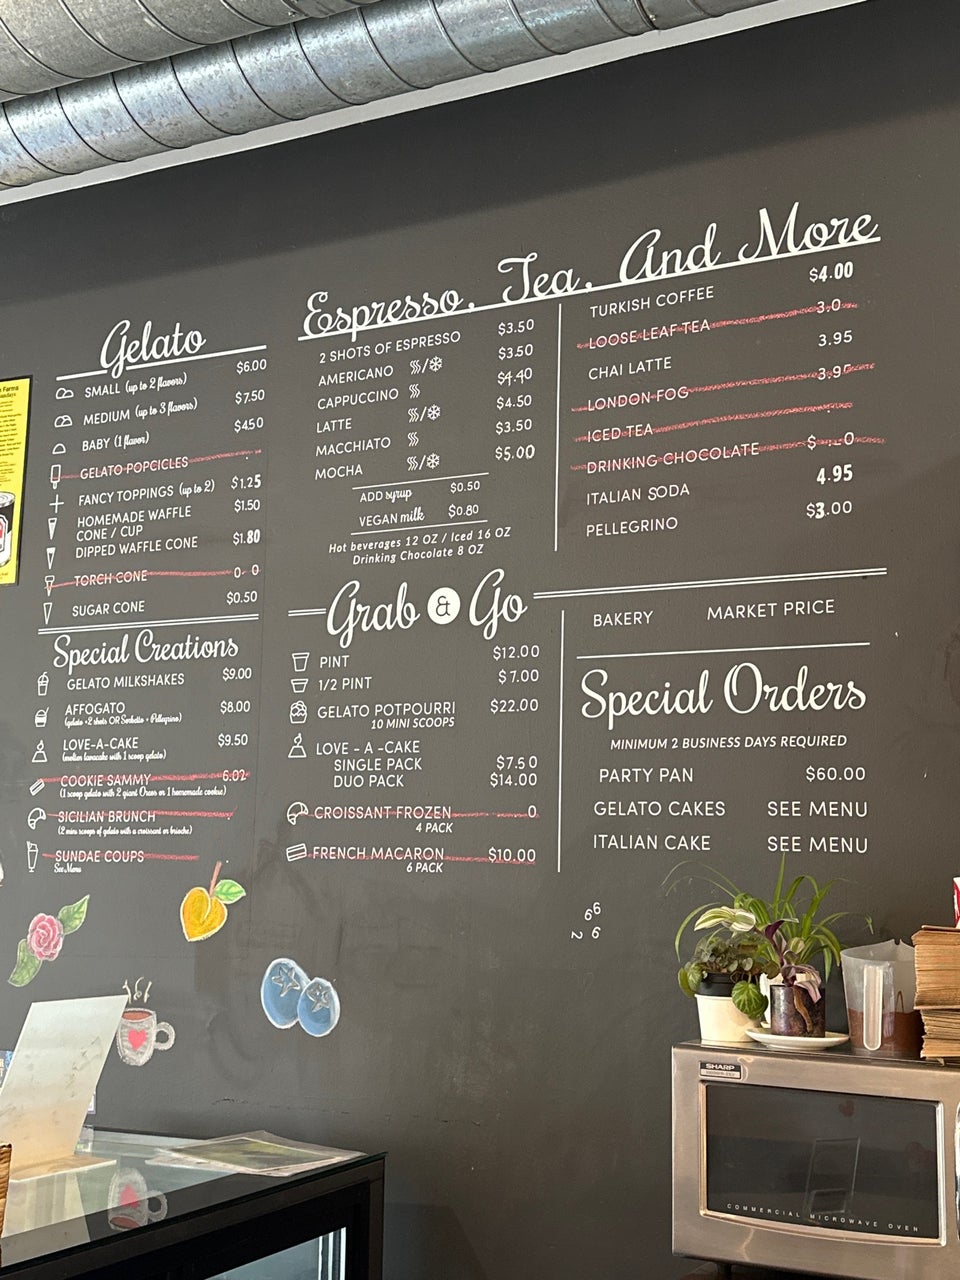 Gelato
SMALL (up to 2 flavors) $6.00
MEDIUM (up to 3 flavors) $7.50
BABY (1 flavor) $4.50
GELATO POPCICLES
FANCY TOPPINGS (up to 2) $1.25
HOMEMADE WAFFLE CONE / CUP $1.50
DIPPED WAFFLE CONE $1.80
TORCH CONE
SUGAR CONE $0.50
Special Creations
GELATO MILKSHAKES $9.00
AFFOGATO $8.00
(gelato + 2 shots OR Sorbetto + Pellegrino)
LOVE-A-CAKE $9.50
(molten lavacake with 1 scoop gelato)
COOKIE SAMMY
(1 scoop gelato with 2 giant Oreos or 1 homemade cookie)
SICILIAN BRUNCH
(2 mini scoops of gelato with a croissant or brioche)
SUNDAE COUPS
See Menu
Espresso, Tea, And More
2 SHOTS OF ESPRESSO $3.50
AMERICANO $3.50
CAPPUCCINO $4.40
LATTE $4.50
MACCHIATO $3.50
MOCHA $5.00
ADD syrup $0.50
VEGAN milk $0.80
Hot beverages 12 OZ / Iced 16 OZ
Drinking Chocolate 8 OZ
TURKISH COFFEE $4.00
LOOSE LEAF TEA 3.0
CHAI LATTE 3.95
LONDON FOG 3.95
ICED TEA
DRINKING CHOCOLATE
ITALIAN SODA 4.95
PELLEGRINO $3.00
Grab & Go
PINT $12.00
1/2 PINT $7.00
GELATO POTPOURRI $22.00
10 MINI SCOOPS
LOVE - A -CAKE
SINGLE PACK $7.50
DUO PACK $14.00
CROISSANT FROZEN 0
4 PACK
FRENCH MACARON $10.00
6 PACK
BAKERY MARKET PRICE
Special Orders
MINIMUM 2 BUSINESS DAYS REQUIRED
PARTY PAN $60.00
GELATO CAKES SEE MENU
ITALIAN CAKE SEE MENU
SHARP
COMMERCIAL MICROWAVE OVEN